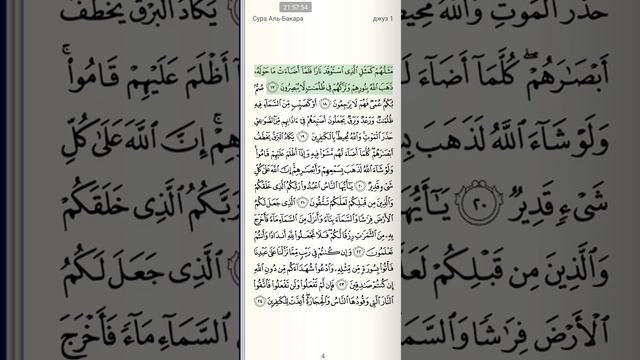 21:57:54
Сура Аль-Бакара
джуз 1
مَثَلُهُمْ كَمَثَلِ ٱلَّذِى ٱسْتَوْقَدَ نَارًا فَلَمَّآ أَضَآءَتْ مَا حَوْلَهُۥ
ذَهَبَ ٱللَّهُ بِنُورِهِمْ وَتَرَكَهُمْ فِى ظُلُمَٰتٍ لَّا يُبْصِرُونَ ١٧ صُمٌّۢ
بُكْمٌ عُمْىٌ فَهُمْ لَا يَرْجِعُونَ ١٨ أَوْ كَصَيِّبٍ مِّنَ ٱلسَّمَآءِ فِيهِ
ظُلُمَٰتٌ وَرَعْدٌ وَبَرْقٌ يَجْعَلُونَ أَصَٰبِعَهُمْ فِىٓ ءَاذَانِهِم مِّنَ ٱلصَّوَٰعِقِ
حَذَرَ ٱلْمَوْتِ وَٱللَّهُ مُحِيطٌۢ بِٱلْكَٰفِرِينَ ١٩ يَكَادُ ٱلْبَرْقُ يَخْطَفُ
أَبْصَٰرَهُمْ كُلَّمَآ أَضَآءَ لَهُم مَّشَوْا۟ فِيهِ وَإِذَآ أَظْلَمَ عَلَيْهِمْ قَامُوا۟
وَلَوْ شَآءَ ٱللَّهُ لَذَهَبَ بِسَمْعِهِمْ وَأَبْصَٰرِهِمْ إِنَّ ٱللَّهَ عَلَىٰ كُلِّ
شَىْءٍ قَدِيرٌ ٢٠ يَٰٓأَيُّهَا ٱلنَّاسُ ٱعْبُدُوا۟ رَبَّكُمُ ٱلَّذِى خَلَقَكُمْ
وَٱلَّذِينَ مِن قَبْلِكُمْ لَعَلَّكُمْ تَتَّقُونَ ٢١ ٱلَّذِى جَعَلَ لَكُمُ
ٱلْأَرْضَ فِرَٰشًا وَٱلسَّمَآءَ بِنَآءً وَأَنزَلَ مِنَ ٱلسَّمَآءِ مَآءً فَأَخْرَجَ
بِهِۦ مِنَ ٱلثَّمَرَٰتِ رِزْقًا لَّكُمْ فَلَا تَجْعَلُوا۟ لِلَّهِ أَندَادًا وَأَنتُمْ
تَعْلَمُونَ ٢٢ وَإِن كُنتُمْ فِى رَيْبٍ مِّمَّا نَزَّلْنَا عَلَىٰ عَبْدِنَا
فَأْتُوا۟ بِسُورَةٍ مِّن مِّثْلِهِۦ وَٱدْعُوا۟ شُهَدَآءَكُم مِّن دُونِ ٱللَّهِ
إِن كُنتُمْ صَٰدِقِينَ ٢٣ فَإِن لَّمْ تَفْعَلُوا۟ وَلَن تَفْعَلُوا۟ فَٱتَّقُوا۟
ٱلنَّارَ ٱلَّتِى وَقُودُهَا ٱلنَّاسُ وَٱلْحِجَارَةُ أُعِدَّتْ لِلْكَٰفِرِينَ ٢٤
4